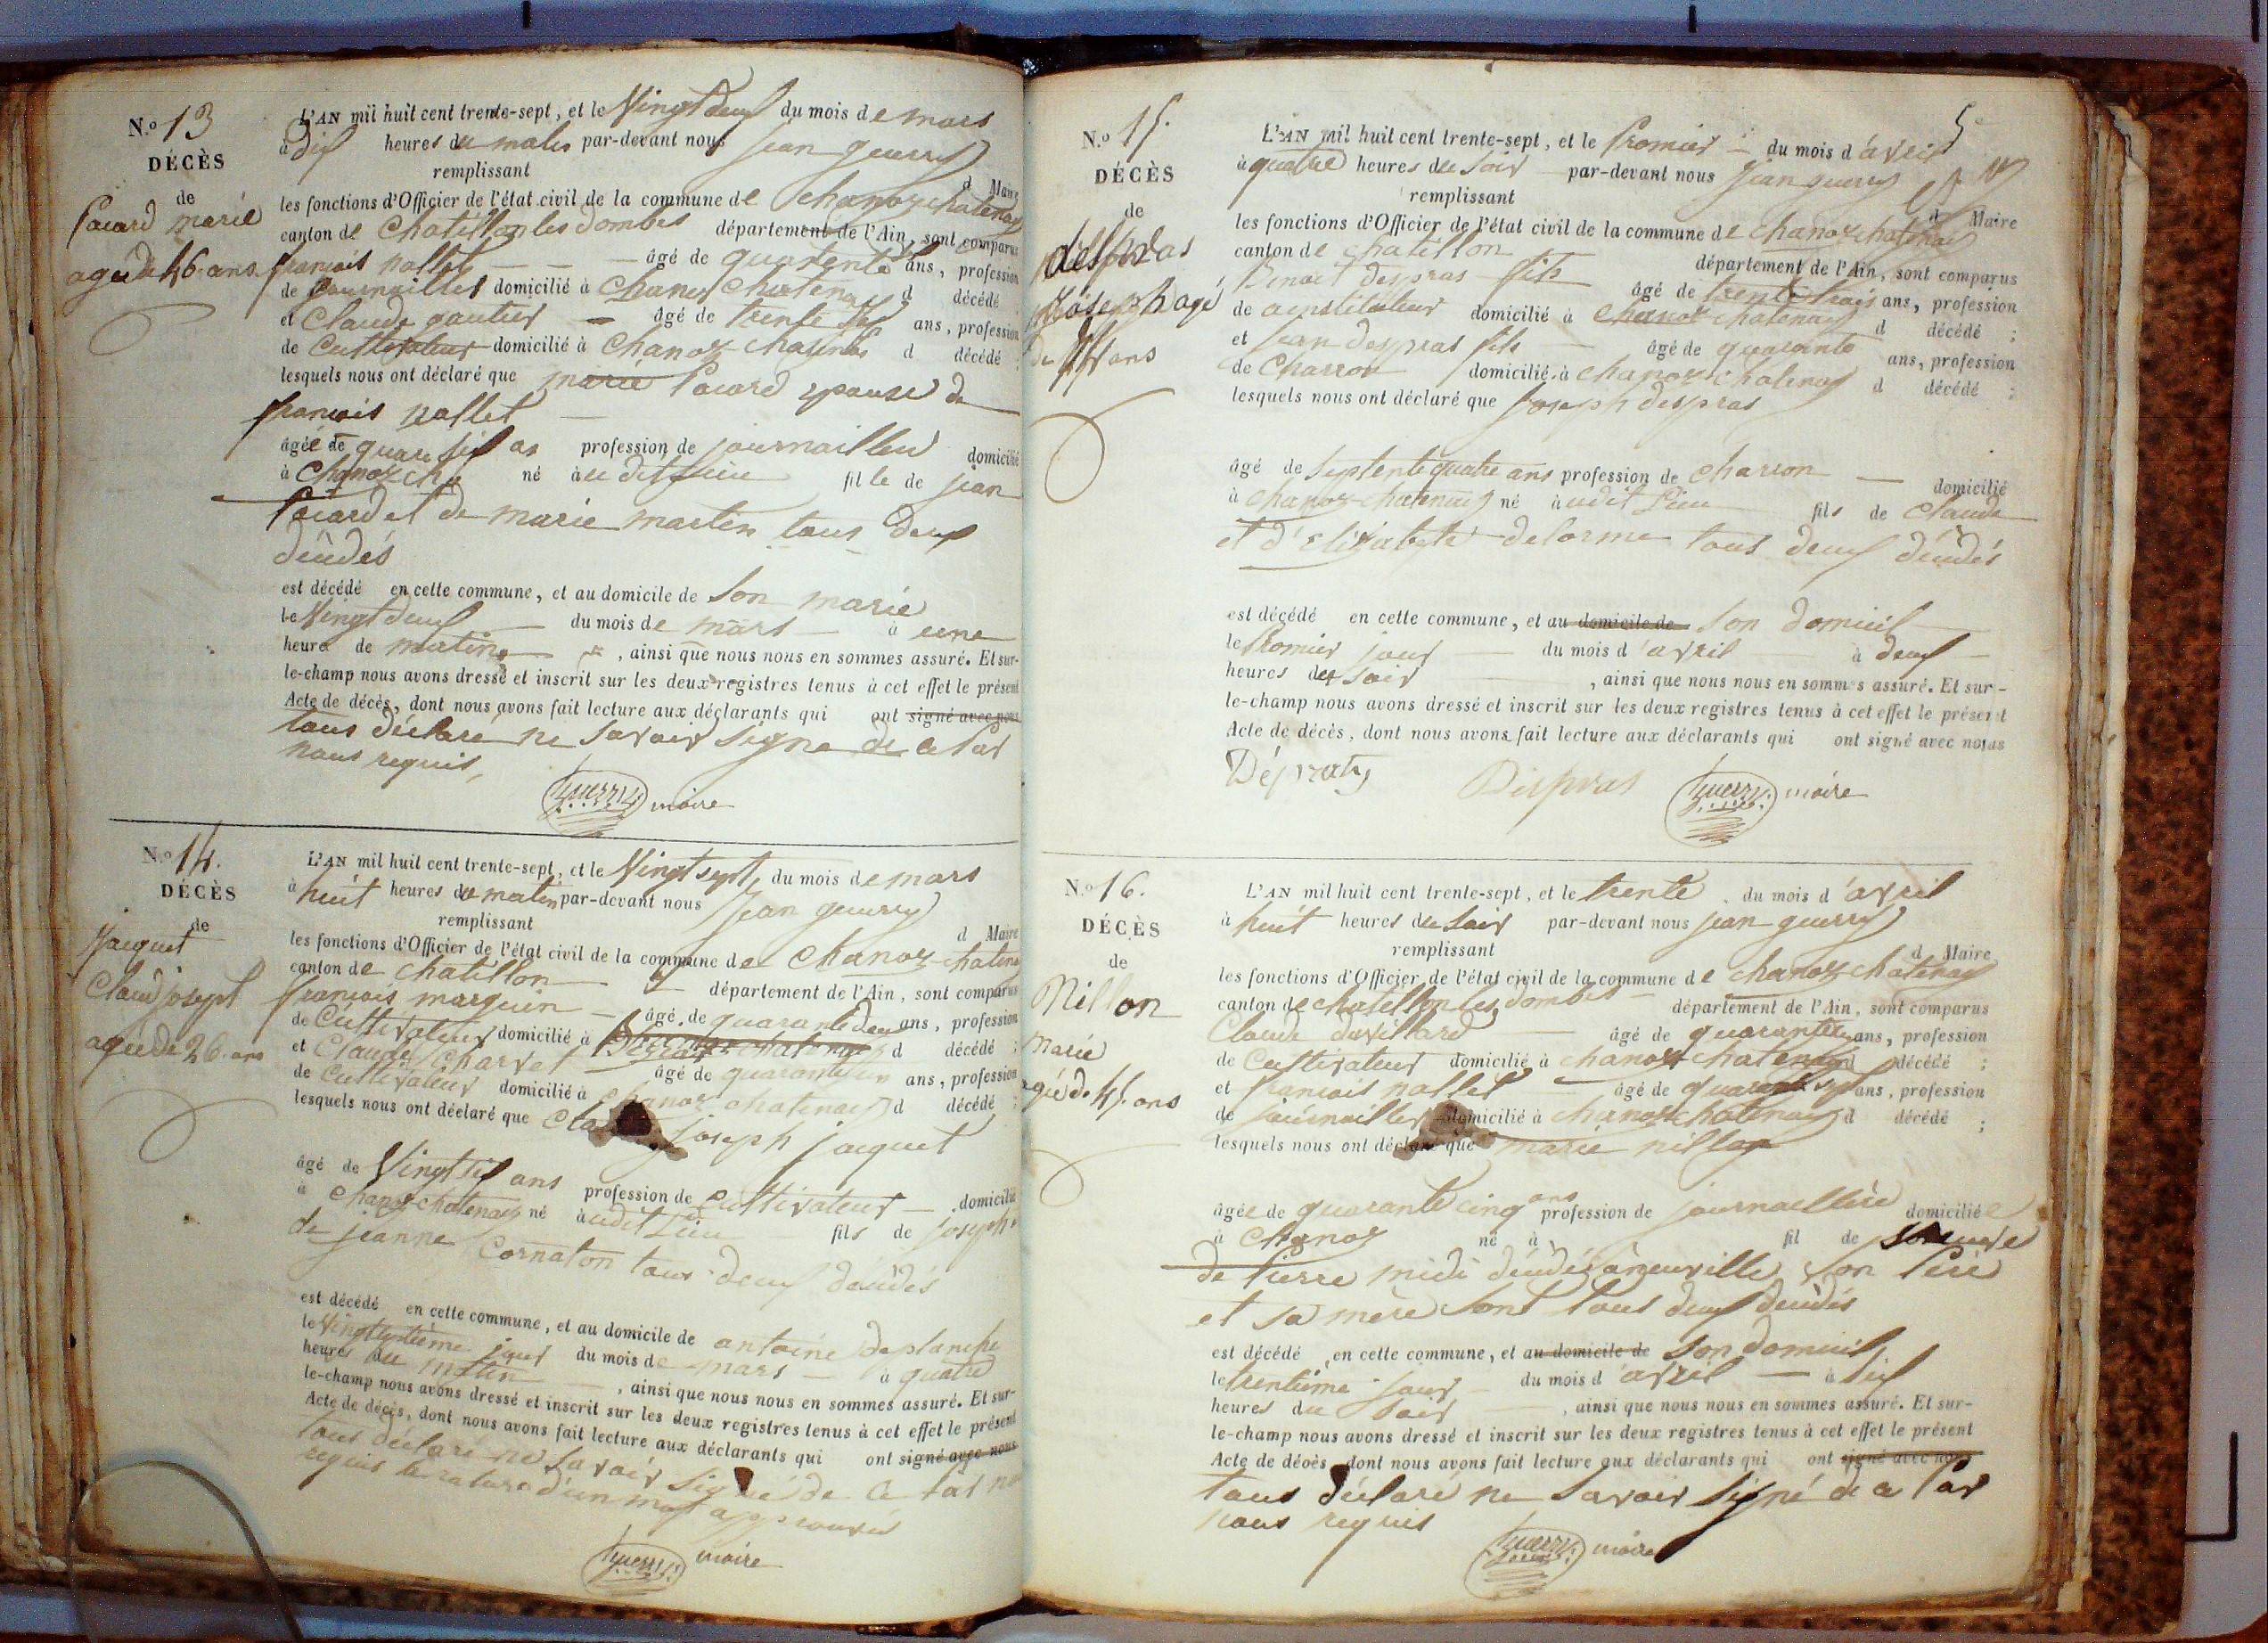 N.o 13
DÉCÈS
de
Pacard marie
agée de 46. ans.
L'AN mil huit cent trente-sept, et le Vingt deux du mois de mars
à dix heures du matin par-devant nous jean guerry
remplissant d Maire
les fonctions d'Officier de l'état civil de la commune de Chanoz chatenay
canton de Chatillon les dombes département de l'Ain, sont comparus
francois nallet âgé de quarente ans, profession
de journaillier domicilié à Chanoz Chatenay d décédé
et Claude gautier âgé de trente six ans, profession
de Cultivateur domicilié à Chanoz Chatenay d décédé ;
lesquels nous ont déclaré que marie Pacard epouse de
francois nallet
âgée de quare six as profession de journaillere domicilié
à Chanoz cha né au dit lieu fille de jean
Pacard et de marie martin tous deux
décédés
est décédé en cette commune, et au domicile de Son marie
le Vingt deux du mois de mars à une
heure de matin , ainsi que nous nous en sommes assuré. Et sur-
le-champ nous avons dressé et inscrit sur les deux registres tenus à cet effet le présent
Acte de décès, dont nous avons fait lecture aux déclarants qui ont signé avec nous
tous déclaré ne Savoir Signe de ce Par
nous requis,
guerry maire
N.o 14.
DÉCÈS
de
jacquet
Claud joseph
agé de 26. ans
L'AN mil huit cent trente-sept, et le Vingt sept, du mois de mars
à huit heures du matin par-devant nous jean guerry
remplissant d Maire
les fonctions d'Officier de l'état civil de la commune de Chanoz chatena
canton de chatillon département de l'Ain, sont comparus
francois marguin âgé de quarante deux ans, profession
de Cultivateur domicilié à chatenay d décédé ;
et Claude charvet âgé de quarante un ans, profession
de Cultivateur domicilié à chanoz chatenay d décédé ;
lesquels nous ont déclaré que Cla joseph jacquet
âgé de Vingt six ans profession de Cultivateur domicilié
à Chanoz chatenay né audit Lieu fils de joseph
de jeanne Cornaton tous deux décédés
est décédé en cette commune, et au domicile de antoine deplanche
le Vingt septième jour du mois de mars à quatre
heures du matin , ainsi que nous nous en sommes assuré. Et sur-
le-champ nous avons dressé et inscrit sur les deux registres tenus à cet effet le présent
Acte de décès, dont nous avons fait lecture aux déclarants qui ont signé avec nous
tous déclaré ne Savoir Signé de ce Par
requis la rature d'un mot approuvée
guerry maire
5
N.o 15.
DÉCÈS
de
despras
joseph agé
de 74 ans
L'AN mil huit cent trente-sept, et le Promier du mois d'avril
à quatre heures du Soir par-devant nous jean guerry
remplissant d Maire
les fonctions d'Officier de l'état civil de la commune de Chanoz chatenay
canton de chatillon département de l'Ain, sont comparus
Benoit despras fils âgé de trente trois ans, profession
de ainstituteur domicilié à Chanoz chatenay d décédé ;
et jean despras fils âgé de quarante ans, profession
de Charron domicilié à chanoz chatenay d décédé ;
lesquels nous ont déclaré que joseph despras
âgé de Septente quatre ans profession de Charron domicilié
à Chanoz chatenay né audit Lieu fils de Claude
et d'Elizabete delorme tous deux décédés
est décédé en cette commune, et au domicile de Son domicil
le Promier jour du mois d'avril à deux
heures du Soir , ainsi que nous nous en sommes assuré. Et sur-
le-champ nous avons dressé et inscrit sur les deux registres tenus à cet effet le présent
Acte de décès, dont nous avons fait lecture aux déclarants qui ont signé avec nous
Despras guerry maire
N.o 16.
DÉCÈS
de
Nillon
marie
agée de 45. ans
L'AN mil huit cent trente-sept, et le trente du mois d'avril
à huit heures du Soir par-devant nous jean guerry
remplissant d Maire
les fonctions d'Officier de l'état civil de la commune de chanoz chatenay
canton de chatillon les dombes département de l'Ain, sont comparus
Claude duvillard âgé de quarante ans, profession
de Cultivateur domicilié à chanoz chatenay d décédé ;
et francois nallet âgé de quarante sept ans, profession
de journaillier domicilié à chanoz chatenay d décédé ;
lesquels nous ont déclaré que marie nillon
âgée de quarante cinq ans profession de journaillère domiciliée
à Chanoz né à fil de
de Pierre midi décédé à neuville Son Père
et sa mère Sont tous deux décédés
est décédé en cette commune, et au domicile de Son domicil
le trentième jour du mois d'avril à Six
heures du Soir , ainsi que nous nous en sommes assuré. Et sur-
le-champ nous avons dressé et inscrit sur les deux registres tenus à cet effet le présent
Acte de décès dont nous avons fait lecture aux déclarants qui ont signé avec nous
tous déclaré ne Savoir Signé de ce Par
nous requis
guerry maire